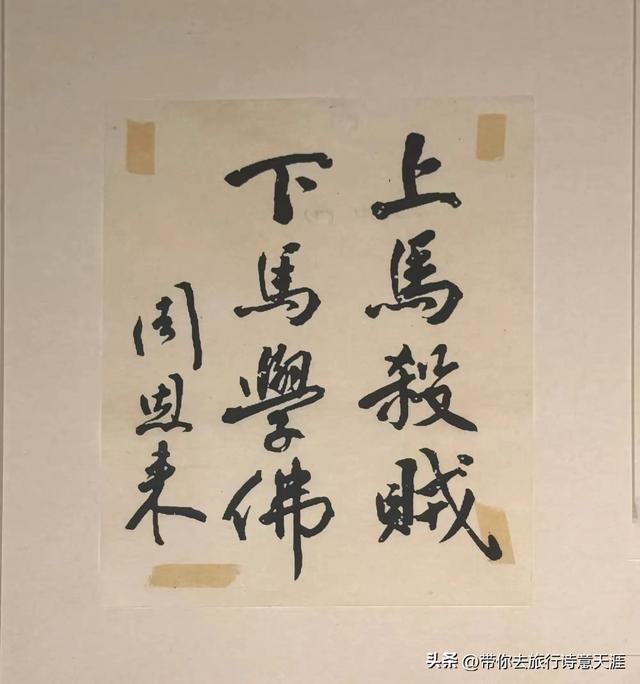 上馬殺賊
下馬學佛
周恩来
头条 @带你去旅行诗意天涯